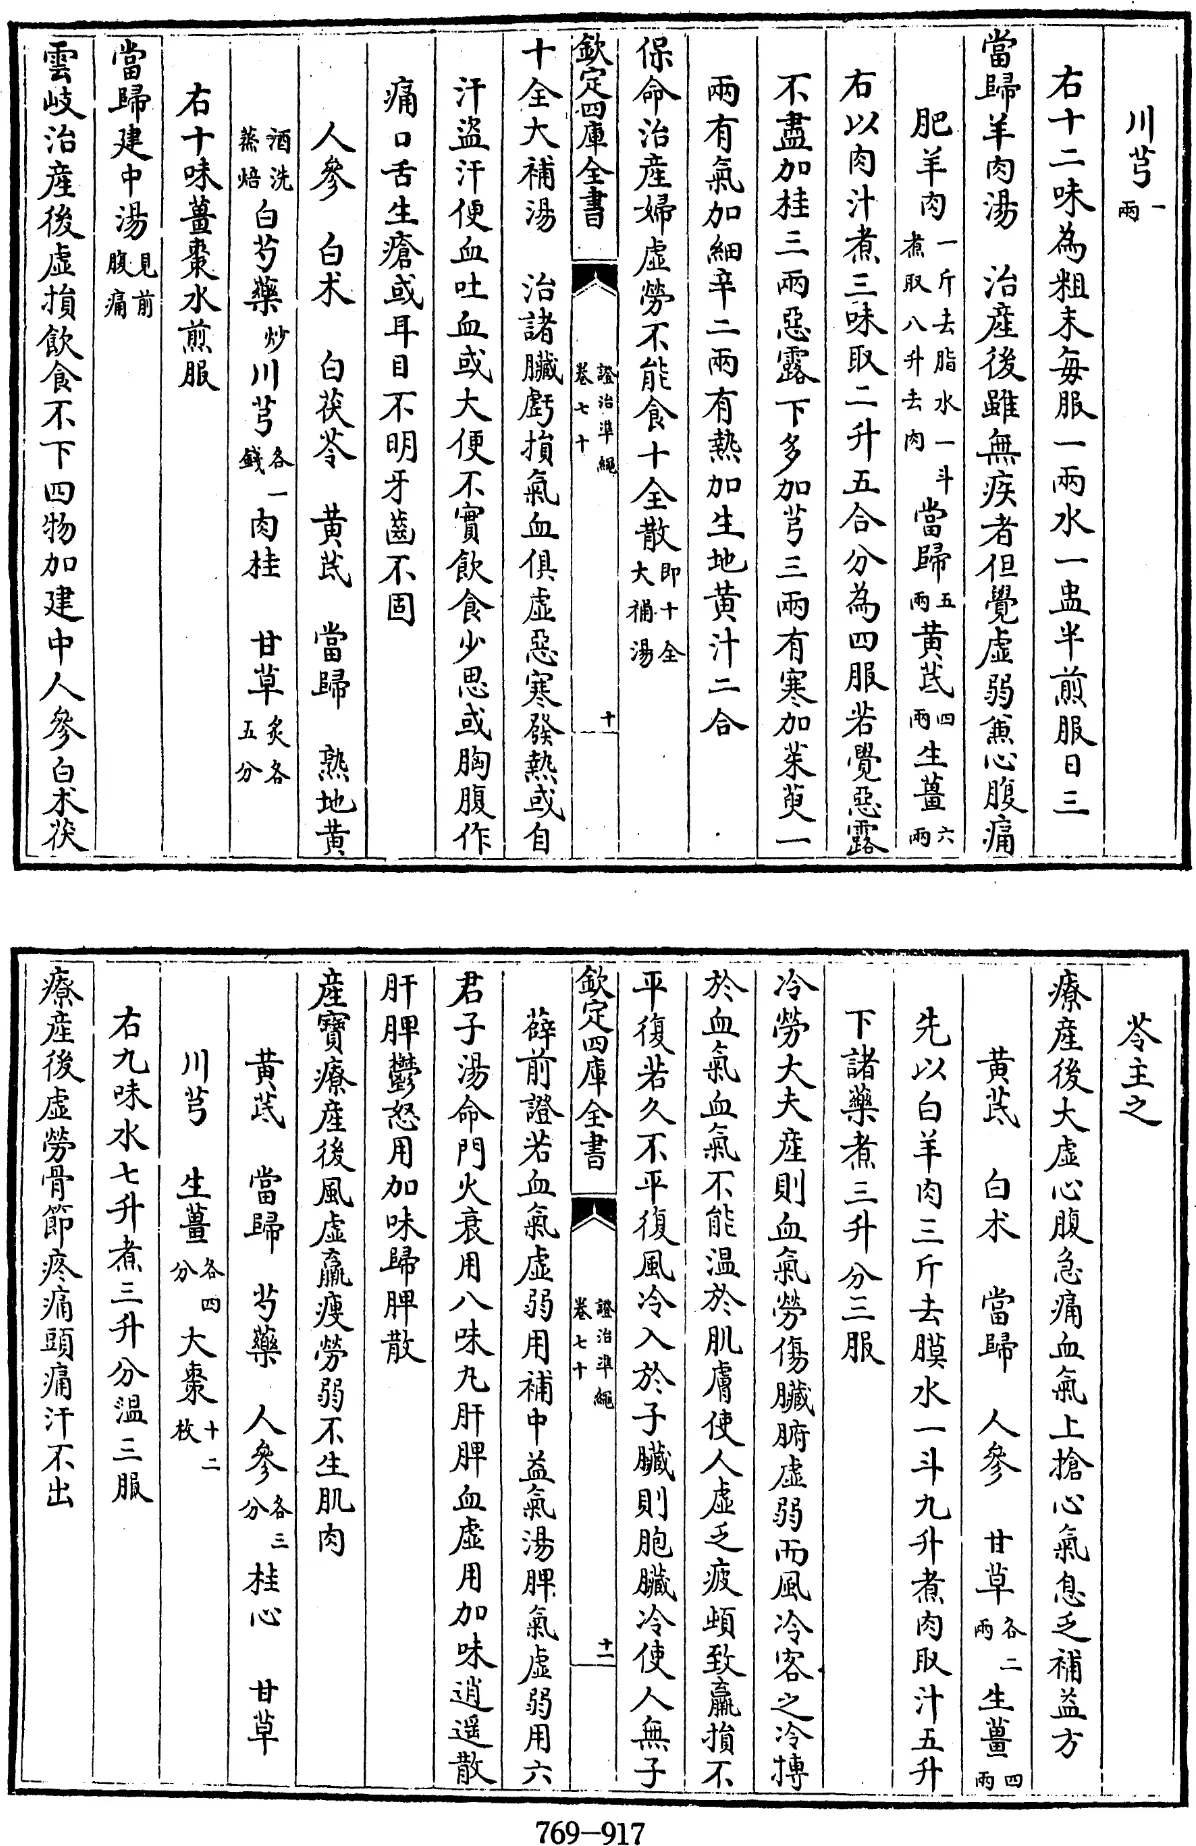 川芎一兩
右十二味為粗末毎服一兩水一盅半煎服日三
當歸羊肉湯　治産後雖無疾者但覺虛弱兼心腹痛
肥羊肉一斤去脂水一斗煮取八升去肉當歸五兩黄芪四兩生薑六兩
右以肉汁煮三味取二升五合分為四服若覺惡露
不盡加桂三兩惡露下多加芎三兩有寒加茱萸一
兩有氣加細辛二兩有熱加生地黄汁二合
保命治産婦虛勞不能食十全散即十全大補湯
欽定四庫全書　證治準繩卷七十　十
十全大補湯　治諸臟虧損氣血俱虛惡寒發熱或自
汗盜汗便血吐血或大便不實飲食少思或胸腹作
痛口舌生瘡或耳目不明牙齒不固
人參　白术　白茯苓　黄芪　當歸　熟地黄
酒洗蒸焙白芍藥炒川芎各一錢肉桂　甘草炙各五分
右十味薑棗水煎服
當歸建中湯見前腹痛
雲岐治産後虛損飲食不下四物加建中人參白术茯
苓主之
療産後大虛心腹急痛血氣上搶心氣息乏補益方
黄芪　白术　當歸　人參　甘草各二兩生薑四兩
先以白羊肉三斤去膜水一斗九升煮肉取汁五升
下諸藥煮三升分三服
冷勞大夫産則血氣勞傷臟腑虛弱而風冷客之冷搏
於血氣血氣不能温於肌膚使人虛乏疲頓致羸損不
平復若久不平復風冷入於子臟則胞臟冷使人無子
欽定四庫全書　證治準繩卷七十　十一
薛前證若血氣虛弱用補中益氣湯脾氣虛弱用六
君子湯命門火衰用八味丸肝脾血虛用加味逍遥散
肝脾鬱怒用加味歸脾散
産寶療産後風虛羸痩勞弱不生肌肉
黄芪　當歸　芍藥　人參各三分桂心　甘草
川芎　生薑各四分大棗十二枚
右九味水七升煮三升分温三服
療産後虛勞骨節疼痛頭痛汗不出
769-917